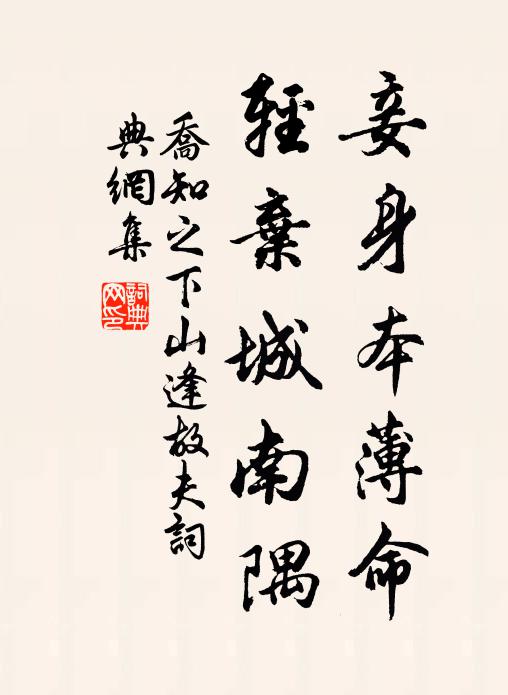 妾身本薄命
輕棄城南隅
喬知之下山逢故夫詞
典網集
詞典
网印